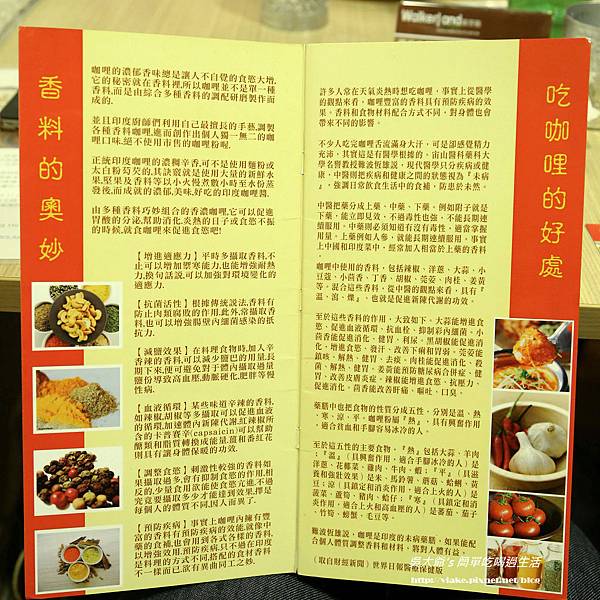 Walkerland
香料的奧妙
咖哩的濃郁香味總是讓人不自覺的食慾大增,
它的秘密就在香料裡,所以咖哩並不是單一種
香料,而是由綜合多種香料的調配研磨製作而
成的.
並且印度廚師們利用自己最擅長的手藝,調製
各種香料咖哩,進而創作出個人獨一無二的咖
哩口味,絕不使用市售的咖哩粉喔.
正統印度咖哩的濃稠辛香,可不是使用麵粉或
太白粉芶芡的,其訣竅就是使用大量的新鮮水
果,堅果及香料等以小火慢煮數小時至水份蒸
發後,而成就的濃郁,美味,好吃的印度咖哩醬.
由多種香料巧妙組合的香濃咖哩,它可以促進
胃酸的分泌,幫助消化,炎熱的日子或食慾不振
的時候,就食咖哩來促進食慾吧!
【增進適應力】平時多攝取香料,不
止可以增加禦寒能力,也能增強耐熱
力,換句話說,可以加強對環境變化的
適應力.
【抗菌活性】根據傳統說法,香料有
防止肉類腐敗的作用,此外,常攝取香
料,也可以增強腸壁內細菌感染的抵
抗力.
【減鹽效果】在料理食物時,加入辛
香辣的香料,可以減少鹽巴的用量,長
期下來,便可避免對于體內攝取過量
鹽份導致高血壓,動脈硬化,肥胖等慢
性病.
【血液循環】某些味道辛辣的香料,
如辣椒,胡椒等多攝取可以促進血液
的循環,加速體內新陳代謝,紅辣椒所
含的卡普賽辛(capsaicin)可以幫助
醣類和脂質轉換成能量,薑和番紅花
則具有讓身體保暖的功效.
【調整食慾】刺激性較強的香料如
果攝取過多,會有抑制食慾的作用,相
反的,少量食用欲能使食慾亢進,不過
究竟要攝取多少才能達到效果,擇是
每個人的體質不同,因人而異了.
【預防疾病】事實上咖哩內擁有豐
富的香料有預防疾病的效能,就像中
藥的食補,也會用到各式各樣的香料,
以增強效用,預防疾病,只不過在印度
是料理的方式不同,搭配的食材香料
不一樣而已,欲有異曲同工之妙.
吃咖哩的好處
許多人常在天氣炎熱時想吃咖哩，事實上從醫學
的觀點來看，咖哩豐富的香料具有預防疾病的效
果。香料和食物材料配合方式不同，對身體也會
帶來不同的影響。
不少人吃完咖哩香流滿身大汗，可是卻感覺精力
充沛，其實這是有醫學根據的。富山醫科藥科大
學名譽教授難波恆雄說，現代醫學只分疾病或健
康，中醫則把疾病和健康之間的狀態視為『未病
』，強調日常飲食生活中的食補，防患於未然。
中醫把藥分成上藥、中藥、下藥。例如附子就是
下藥，能立即見效，不過毒性也強，不能長期連
續服用。中藥則必須知道有沒有毒性，適當掌握
用量。上藥例如人參，就能長期連續服用，事實
上中國和印度菜中，經常加入相當於上藥的香料
咖哩中使用的香料，包括辣椒、洋蔥、大蒜、小
豆蔻、小茴香、丁香、胡椒、芫荽、肉桂、姜黃
等。混合這些香料，從中醫的觀點來看，具有『
溫、瀉、燥』，也就是促進新陳代謝的功效。
至於這些香料的作用，大致如下。大蒜能增進食
慾、促進血液循環、抗血栓、抑制彩內細菌。小
茴香能促進消化、健胃、利尿。黑胡椒能促進消
化、增進食慾、發汗、改善下痢和胃弱。芫荽能
鎮咳、解熱、健胃、去痰。肉桂能促進消化、殺
菌、解熱、健胃。姜黃能預防糖尿病合併症、健
胃、改善皮膚炎症。辣椒能增進食慾、抗壓力、
促進消化。茴香能改善肝痛、嘔吐、口臭。
藥膳中也把食物的性質分成五性，分別是溫、熱
、寒、涼、平。咖哩粉屬『熱』，具有興奮作用
，適合貧血和手腳容易冰冷的人。
至於這五性的主要食物，『熱』包括大蒜、羊肉
；『溫』（具興奮作用，適合手腳冰冷的人）是
洋蔥、花椰菜、雞肉、牛肉、蝦；『平』（具滋
養和強壯效果）是米、馬鈴薯、蘑菇、蛤蜊、黃
豆；涼（具鎮定和消炎作用，適合上火的人）是
菠菜、蘿蔔、豬肉、蛤仔；『寒』（具鎮定和消
炎作用，適合上火和高血壓的人）是蕃茄、茄子
、竹筍、螃蟹、毛豆等。
難波恆雄說，咖哩是印度的未病藥膳，如果能配
合個人體質調整香料和材料，將對人體有益。
（取自財經新聞）世界日報醫療保健版
吳大爺's 簡單吃喝過生活
http://viake.pixnet.net/blog